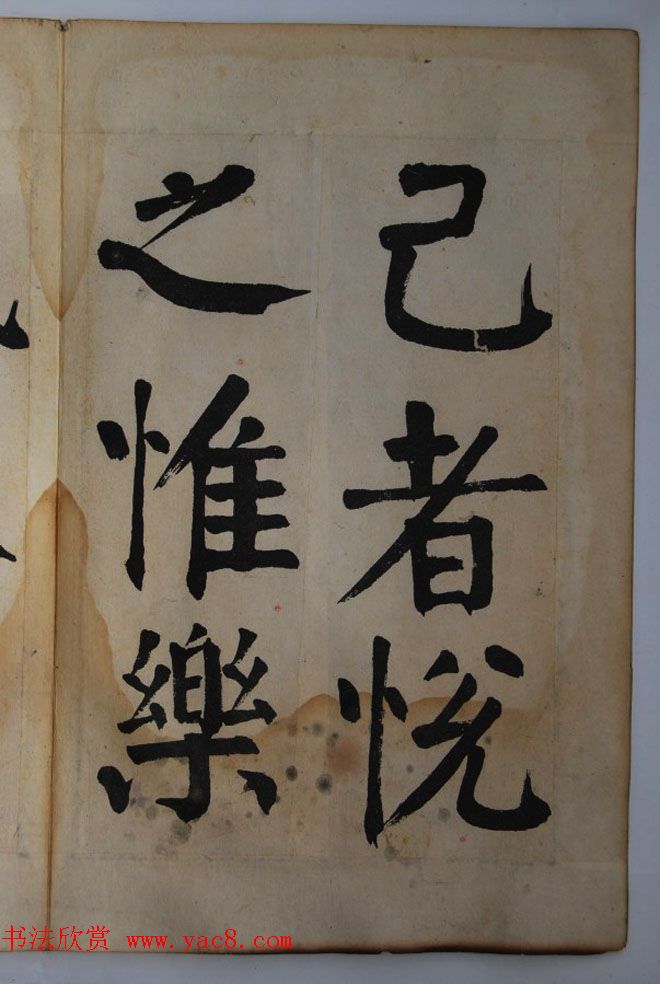 己者悦
之惟樂
书法欣赏 www.yac8.com